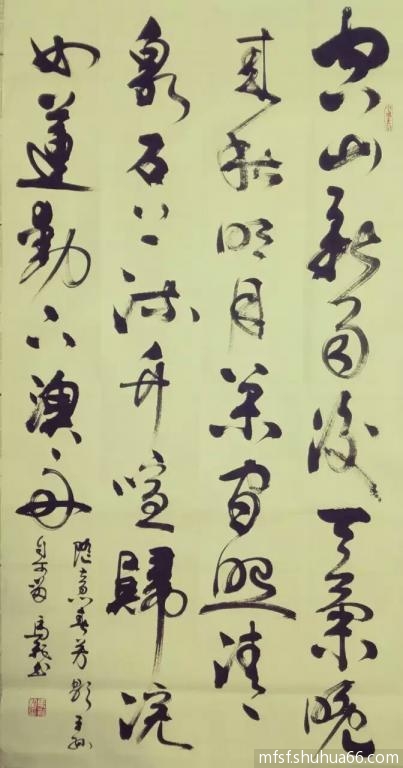 空山新雨後天氣晚
來秋明月松間照清
泉石上流竹喧歸浣
女蓮動下漁舟
隨意春芳歇王孫
自可留 馬書
mfsf.shuhua66.com